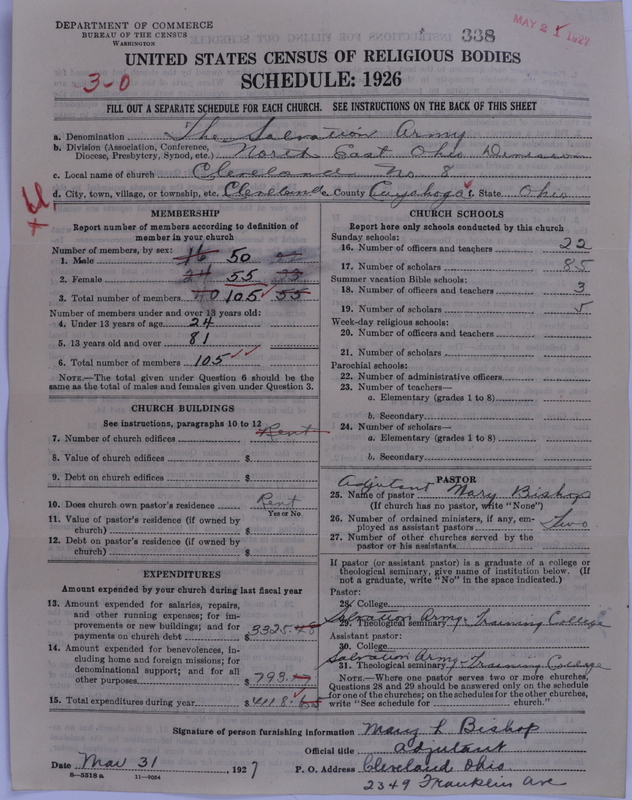 DEPARTMENT OF COMMERCE
BUREAU OF THE CENSUS
WASHINGTON
338
MAY 2 1927
UNITED STATES CENSUS OF RELIGIOUS BODIES
SCHEDULE: 1926
3-0
FILL OUT A SEPARATE SCHEDULE FOR EACH CHURCH. SEE INSTRUCTIONS ON THE BACK OF THIS SHEET
a. Denomination The Salvation Army
b. Division (Association, Conference, Diocese, Presbytery, Synod, etc.) North East Ohio Division
c. Local name of church Cleveland No 8
d. City, town, village, or township, etc. Cleveland e. County Cuyahoga f. State Ohio
MEMBERSHIP
Report number of members according to definition of
member in your church
Number of members, by sex:
1. Male 16 50
2. Female 24 55 33
3. Total number of members 40 105 55
Number of members under and over 13 years old:
4. Under 13 years of age 24
5. 13 years old and over 81
6. Total number of members 105
NOTE.—The total given under Question 6 should be
same as the total of males and females given under Question 3.
CHURCH BUILDINGS
See instructions, paragraphs 10 to 12
Rent
7. Number of church edifices
8. Value of church edifices $
9. Debt on church edifices $
10. Does church own pastor's residence Rent
Yes or No
11. Value of pastor's residence (if owned by
church) $
12. Debt on pastor's residence (if owned by
church) $
EXPENDITURES
Amount expended by your church during last fiscal year
13. Amount expended for salaries, repairs,
and other running expenses; for im-
provements or new buildings; and for
payments on church debt $3325.48
14. Amount expended for benevolences, in-
cluding home and foreign missions; for
denominational support; and for all
other purposes $793.
15. Total expenditures during year $4118.
CHURCH SCHOOLS
Report here only schools conducted by this church
Sunday schools:
16. Number of officers and teachers 22
17. Number of scholars 85
Summer vacation Bible schools:
18. Number of officers and teachers 3
19. Number of scholars 5
Week-day religious schools:
20. Number of officers and teachers
21. Number of scholars
Parochial schools:
22. Number of administrative officers
23. Number of teachers—
a. Elementary (grades 1 to 8)
b. Secondary
24. Number of scholars—
a. Elementary (grades 1 to 8)
b. Secondary
PASTOR
25. Name of pastor Adjutant Mary Bishop
(If church has no pastor, write "None")
26. Number of ordained ministers, if any, em-
ployed as assistant pastors Two
27. Number of other churches served by the
pastor or his assistants
If pastor (or assistant pastor) is a graduate of a college or
theological seminary, give name of institution below. (If
not a graduate, write "No" in the space indicated.)
Pastor:
28. College
29. Theological seminary Salvation Army Training College
Assistant pastor:
30. College
31. Theological seminary Salvation Army Training College
NOTE.—Where one pastor serves two or more churches,
Questions 28 and 29 should be answered only on the schedule
for one of the churches; on the schedules for the other churches,
write "See schedule for church."
Signature of person furnishing information Mary L Bishop
Official title Adjutant
Date Mar 31 1927 P. O. Address Cleveland Ohio
8—5518a 11—9054
2349 Franklin Ave